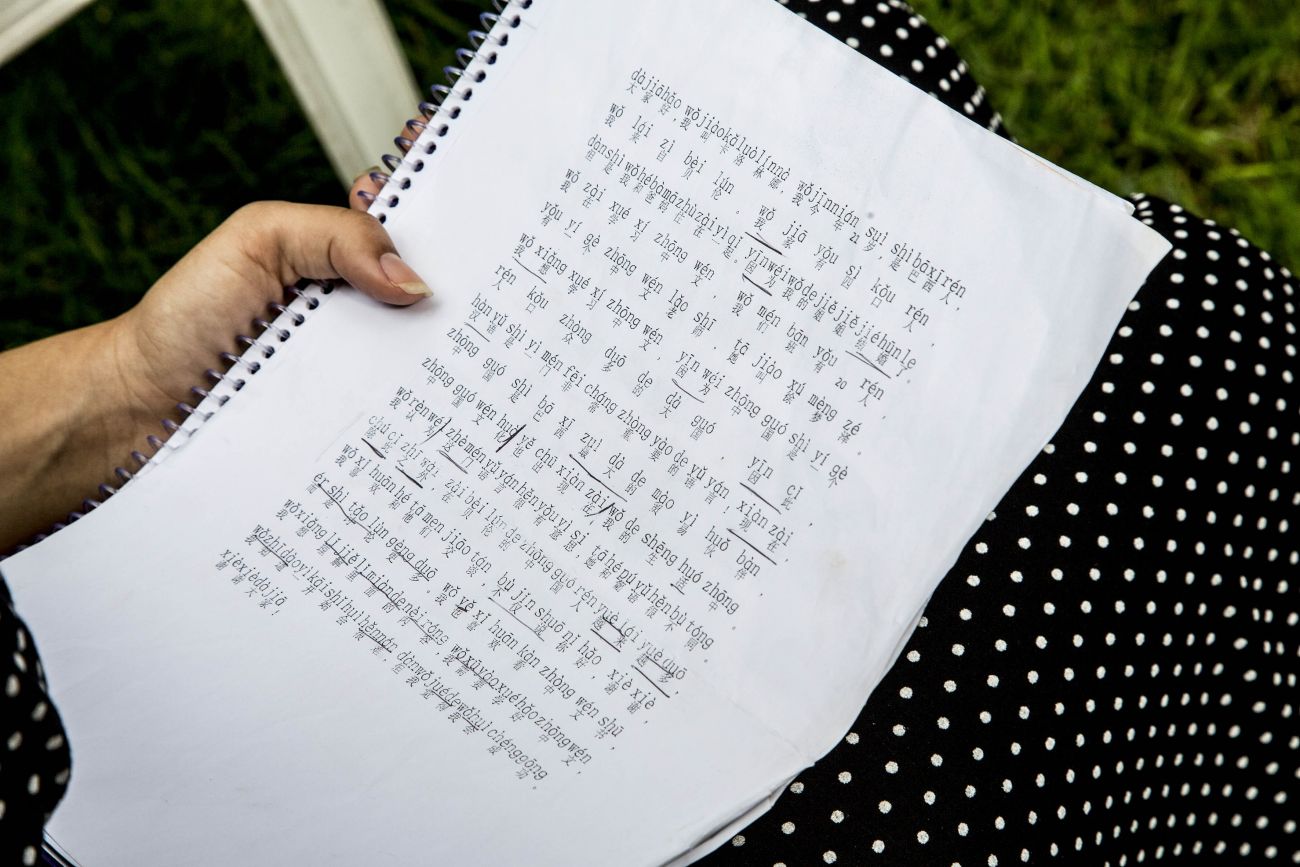 dàjiāhǎo wǒjiàokǎluòlínnà wǒjīnnián suì shìbāxīrén
大家好，我叫卡洛林娜 我今年21岁，是巴西人，
wǒ lái zì bèi lún wǒ jiā yǒu sì kǒu rén
我来自贝伦。我家有四口人，
dànshìwǒhébàmāzhùzàiyìqǐ yīnwéiwǒdejiějiějiéhūnle
但是我和爸妈住在一起。因为我的姐姐结婚了。
wǒ zài xué xí zhōng wén wǒ men bān yǒu rén
我在学习中文，我们班有20人，
yǒu yí gè zhōng wén lǎo shī tā jiào xú mèng zé
有一个中文老师，她叫徐梦泽
wǒ xiǎng xué xí zhōng wén yīn wéi zhōng guó shì yí gè
我想学习中文，因为中国是一个
rén kǒu zhòng duō de dà guó yīn cǐ
人口众多的大国，因此，
hàn yǔ shì yì mén fēi cháng zhòng yào de yǔ yán xiàn zài
汉语是一门非常重要的语言！现在
zhōng guó shì bā xī zuì dà de mào yì huǒ bàn
中国是巴西最大的贸易伙伴
zhōng guó wén huà yě chū xiàn zài wǒ de shēng huó zhōng
中国文化也出现在我的生活中。
wǒ rèn wéi zhè mén yǔ yán hěn yǒu yì si tā hé pú yǔ hěn bù tóng
我认为这门语言很有意思，它和葡语很不同。
chú cǐ zhī wài zài bèi lún de zhōng guó rén yuè lái yuè duō
除此之外，在贝伦的中国人越来越多，
wǒ xǐ huān hé tā men jiāo tán bù jǐn shuō nǐ hǎo xiè xiè
我喜欢和他们交谈，不仅说你好，谢谢，
ér shì tǎo lùn gèng duō wǒ yě xǐ huān kàn zhōng wén shū
而是讨论更多，我也喜欢看中文书，
wǒxiǎng lǐjiělǐmiàndenèiróng wǒxūyàoxuéhǎozhōngwén
我想理解里面的内容，我需要学好中文，
wǒzhīdàoyìkāishǐhuìhěnnán dànwǒjuédewǒhuì chénggōng
我知道一开始会很难，但我觉得我会成功。
xièxièdàjiā
谢谢大家！